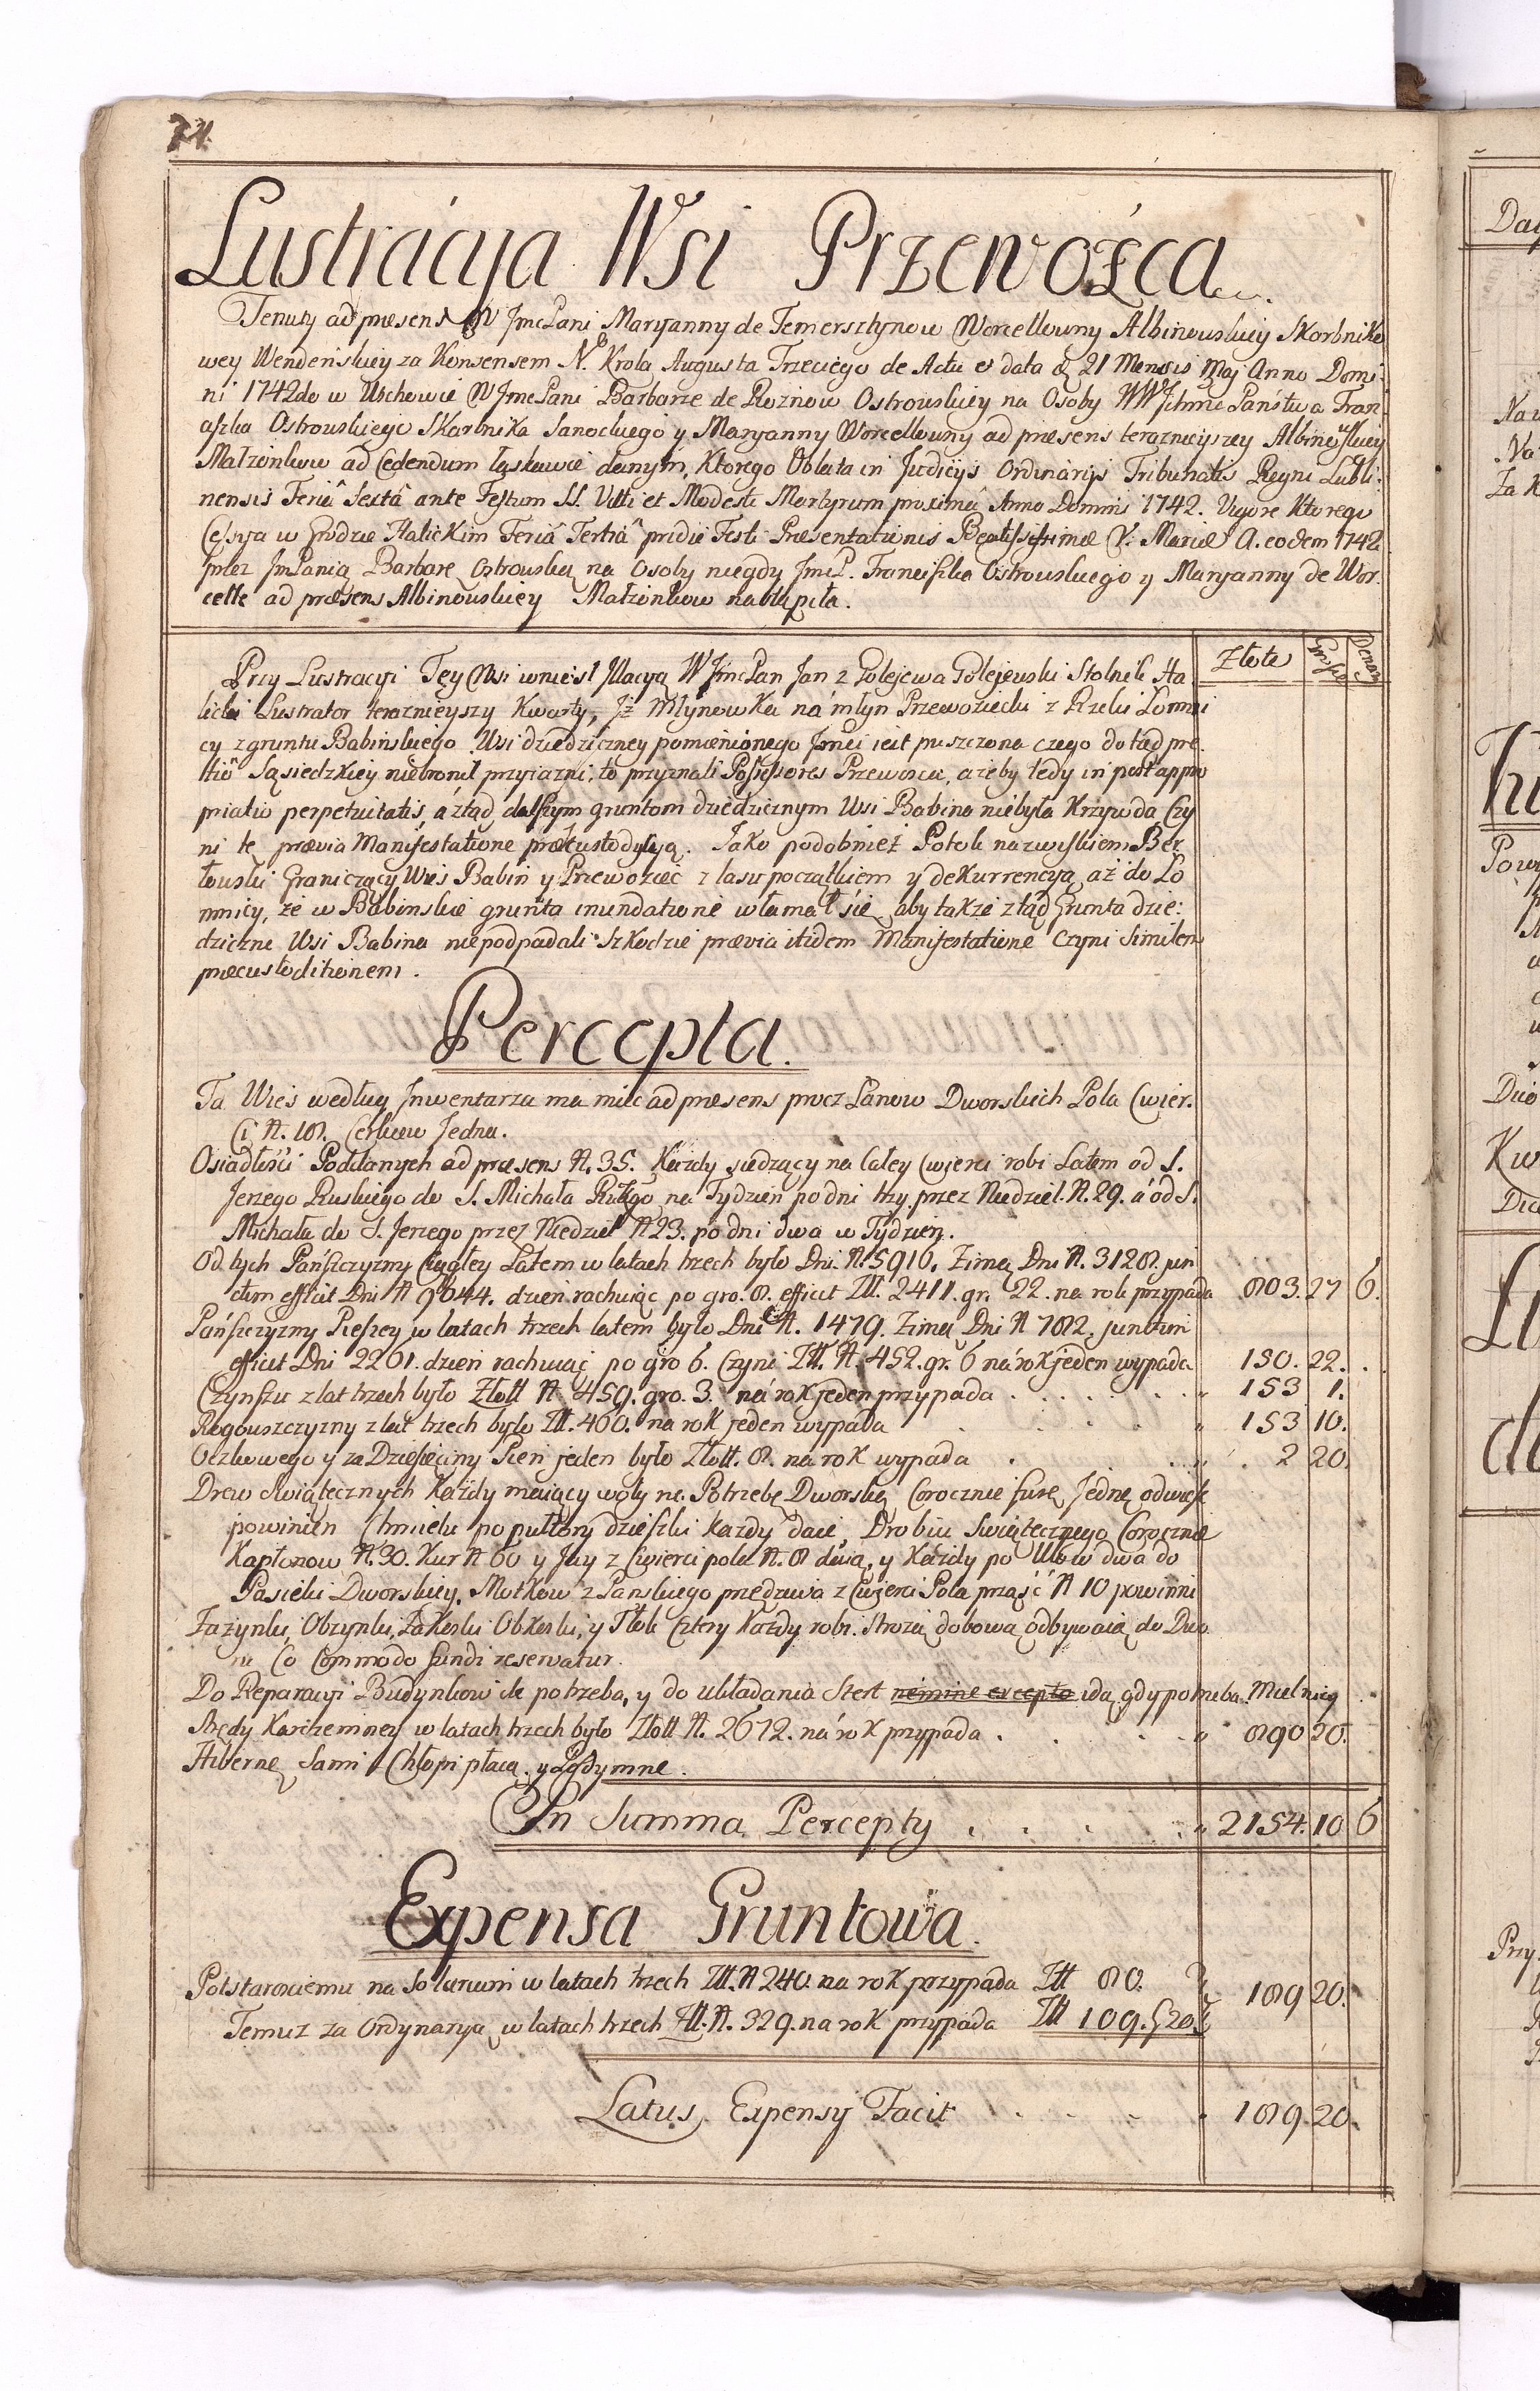 74.
Lustracya Wsi Przewoźca
Tenuty ad præsens W JmcPani Maryanny de Temersztynow Worcellowny Albinowskiey Skarbniko
wey Wendeńskiey za Konsensem N. Krola Augusta Trzeciego de Actu et data d 21 Mensis Maj Anno Domi
ni 1742do w Wschowie W JmcPani Barbarze de Roznow Ostrowskiey na Osoby WWJchmć Państwa Fran
ciszka Ostrowskiego Skarbnika Sanockiego y Maryanny Worcellowny ad præsens teraznieyszey Albinowskiey
Małzonkow ad Cedendum łaskawie danym, Ktorego Oblata in Judicijs Ordinarijs Tribunalis Regni Lubli:
nensis Feriâ Sextâ ante Festum SS. Viti et Modesti Martyrum proximâ Anno Domini 1742. Vigore Ktorego
Cessya w Grodzie Halickim Feriâ Tertiâ pridie Festi Præsentationis Beatissimæ V. Mariæ A. eodem 1742
przez JmPanią Barbarę Ostrowską na Osoby niegdy JmcP. Franciszka Ostrowskiego y Maryanny de Wor:
celle ad præsens Albinowskiey Małzonkow nastąpiła.
Złote Grosze Denar
Przy Lustracyi Tey Wsi wniosł Illacyą W JmcPan Jan z Golejewa Golejewski Stolnik Ha
licki Lustrator teraznieyszy Kwarty, Iż Młynowka na młyn Przewoziecki z Rzeki Łomni
cy z gruntu Babińskiego Wsi dziedziczney pomienionego Jmci iest puszczona czego dotąd pre
tio Sąsiedzkiey niebronił przyiazni, to przyznali Possessores Przewozca, ażeby tedy in post appro
priatio perpetuitatis, a ztąd dalszym gruntom dziedzicznym Wsi Babina niebyła Krzywda Czy
ni te prævia Manifestatione præcustodycyą. Jako podobnież Potok nazwiskiem Ber
łowski Graniczący Wieś Babin y Przewoziec z lasu początkiem y dekurrencyą aż do Ło
mnicy, że w Babinskie grunta inundatione włamał się, aby także ztąd Grunta dzie:
dziczne Wsi Babina niepodpadali Szkodzie prævia itidem Manifestatione Czyni Similem
præcustoditionem.
Percepta.
Ta Wieś według Inwentarza ma mieć ad præsens procz Łanow Dworskich Pola Cwier.
Ci N. 18. Cerkiew Jedna.
Osiadłości Poddanych ad præsens N. 35. Kazdy siedzący na Całey Cwierci robi Latem od S.
Jerzego Ruskiego do S. Michała Ruskgo na Tydzien po dni trzy przez Niedziel. N. 29. a od S.
Michała do S. Jerzego przez Niedziel N 23. po dni dwa w Tydzien.
Od tych Pańszczyzny Ciągłey Latem w latach trzech było Dni. N. 5916. Zimą Dni N. 3128. jun
ctim efficit Dni N 9644. dzień rachuiąc po gro. 8. efficit Zll. 2411. gr. 22. na rok przypada 803. 27 6.
Pańszczyzny Pieszey w latach trzech latem było Dni N. 1479. Zimą Dni N 782. junctim
efficit Dni 2261. dzień rachuiąc po gro 6. Czyni Zll. N. 452. gr. 6 na rok jeden wypada 150. 22.
Czynszu z lat trzech było Złott N 459. gro. 3. na rok jeden przypada 153 1.
Rogowszczyzny z lat trzech było Zll. 460. na rok jeden wypada 153 10.
Oczkowego y za Dziesięciny Pień jeden było Złott. 8. na rok wypada 2 20.
Drew Swiątecznych Każdy maiący woły na Potrzebę Dworską Corocznie furę Jednę odwieść
powinien Chmielu po pułtory dzieszki każdy daie, Drobiu Swiątecznego Corocznie
Kapłonow N. 30. Kur N 60 y Jay z Cwierci pola N. 8 daią, y Każdy po Ulow dwa do
Pasieki Dworskiey. Motkow z Pańskiego przędziwa z Cwierci Pola prząść N 10 powinni
Zażynki, Obzynki, Zakoski Obkoski, y Tłok Cztery Kazdy robi. Strożą dobową odbywaią do Dwo
ru Co Commodo fundi reservatur.
Do Reparacyi Budynkow ile potrzeba, y do układania Stert nemine excepto idą gdy potrzeba. Mielnicy
Arędy Karczemney w latach trzech było Złott N. 2672. na rok przypada 890 20.
Hibernę Sami Chłopi płacą y Podymne.
In Summa Percepty 2154. 10 6
Expensa Gruntowa.
Potstarosciemu na Solarium w latach trzech Zll. N 240. na rok przypada Zll 80.
Temuz za Ordynaryą w latach trzech Zll. N. 329. na rok przypada Zll 109. g 20. 189 20.
Latus Expensy Facit 189. 20.